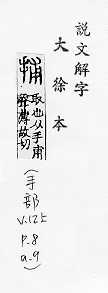 說文解字
大徐本
捕
取也从手甫
聲薄故切
(手部
V.12上
P.8
a-9)